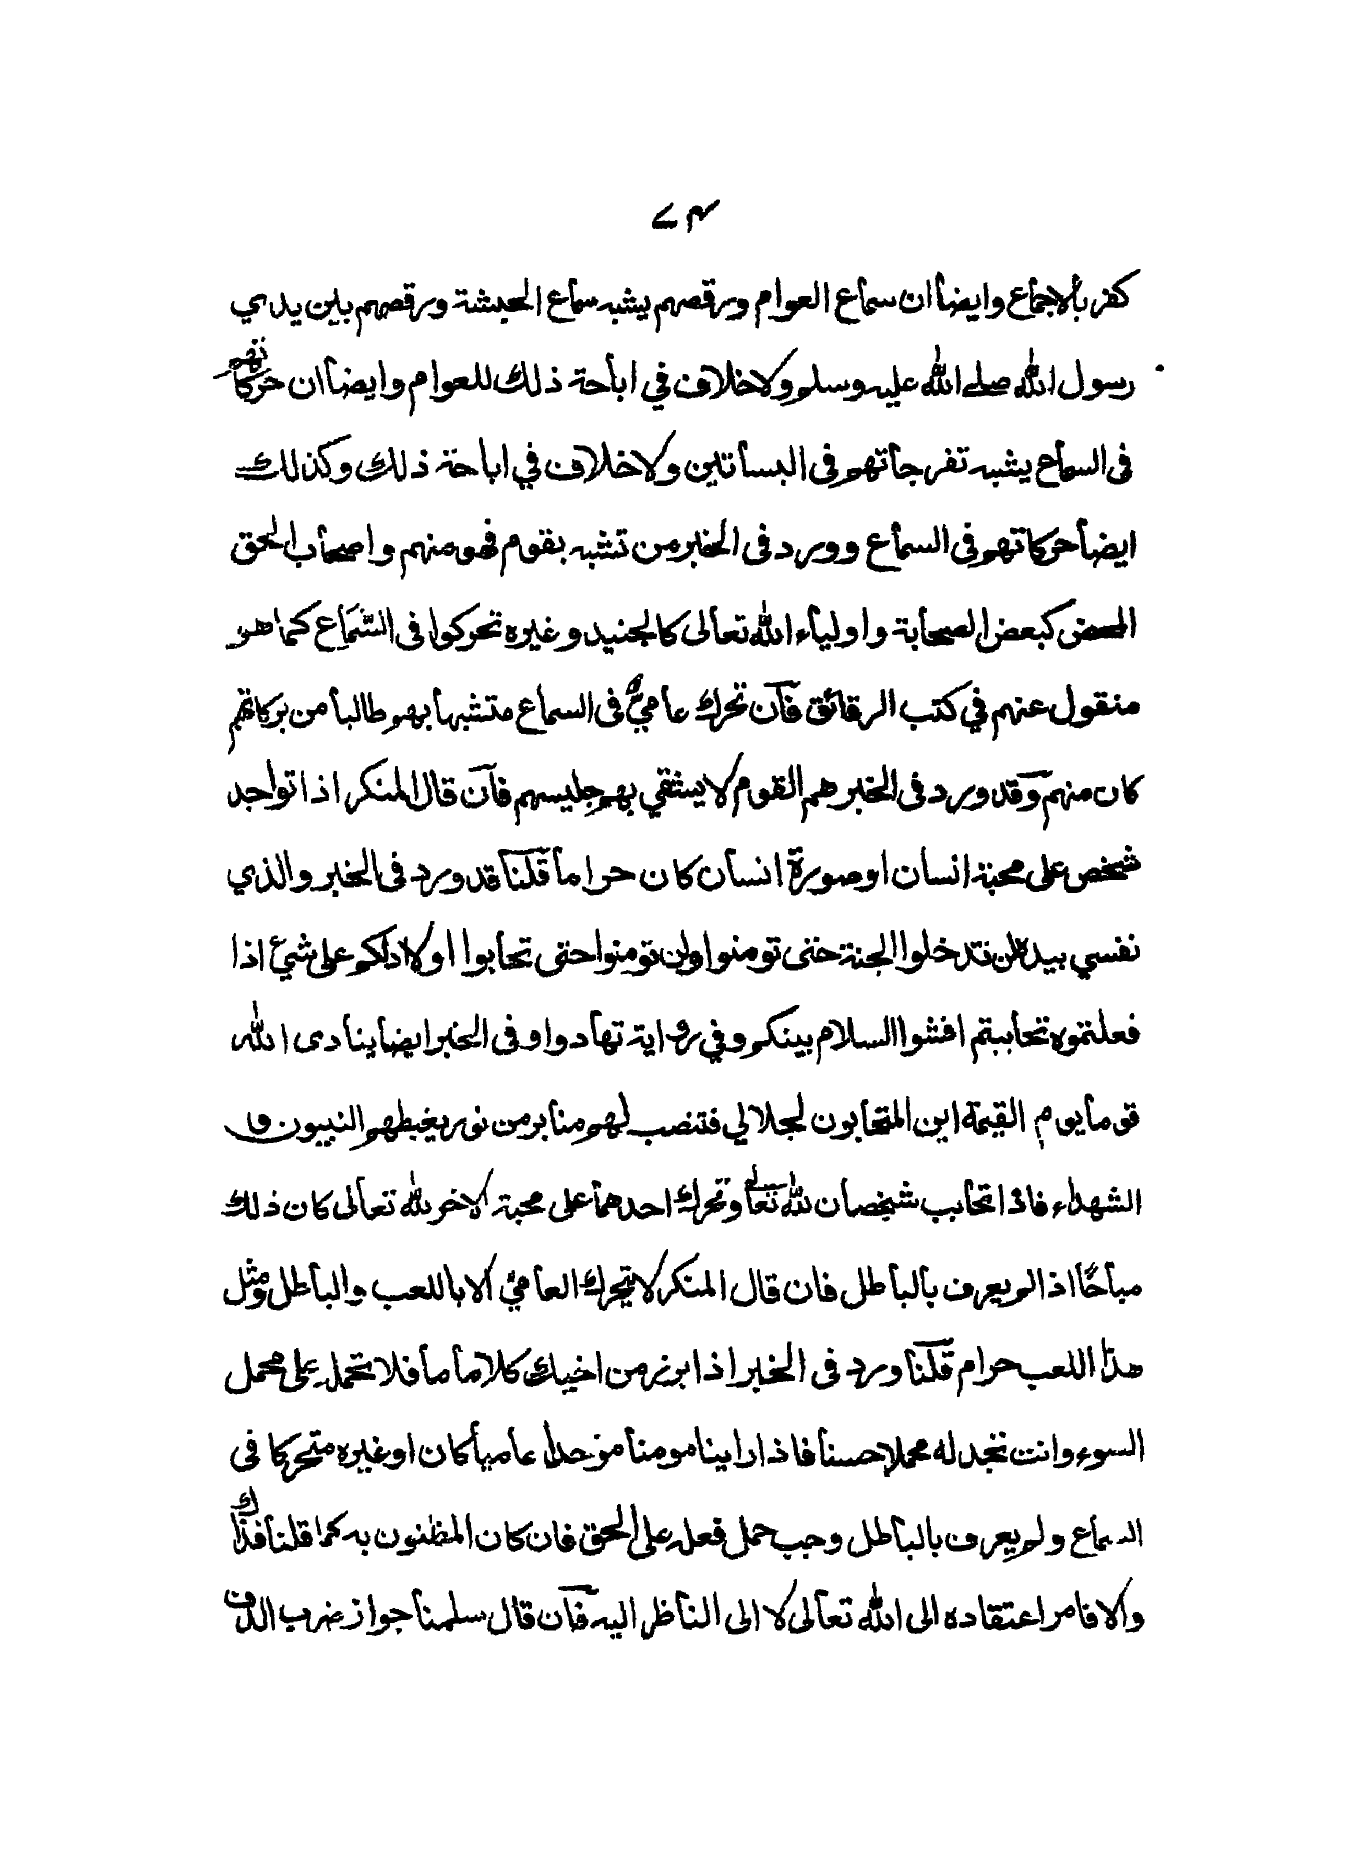 ٧٤
كفر بالاجماع وايضا ان سماع العوام ورقصهم يشبه سماع الحبشة ورقصهم بين يدي
رسول الله صلے الله عليه وسلم ولا خلاف في اباحة ذلك للعوام وايضا ان حركاتهم
فى السماع يشبه تفرجاتهم فى البساتين ولا خلاف في اباحة ذلك وكذلك
ايضا حركاتهم فى السماع وورد فى الخبر من تشبه بقوم فهو منهم واصحاب الحق
المحض كبعض الصحابة واولياء الله تعالى كالجنيد وغيره تحركوا فى السَّمَاع كما هو
منقول عنهم في كتب الرقائق فان تحرك عاميٌّ فى السماع متشبها بهم طالبا من بركاتهم
كان منهم وقد ورد فى الخبر هم القوم لا يشقي بهم جليسهم فان قال المنكر اذا تواجد
شخص على محبة انسان او صورة انسان كان حراما قلنا قد ورد فى الخبر والذي
نفسي بيده لن تدخلوا الجنة حتى تومنوا ولن تومنوا حتى تحابوا اولا ادلكم على شيء اذا
فعلتموه تحاببتم افشوا السلام بينكم وفي رواية تهادوا وفى الخبر ايضا ينادى الله
قوما يوم القيمة اين المتحابون لجلالي فتنصب لهم منابر من نور يغبطهم النبيون و
الشهداء فاذا تحابب شخصان لله تعالے وتحرك احدهما على محبة الاخر لله تعالى كان ذلك
مباحًا اذ الم يعرف بالباطل فان قال المنكر لا يتحرك العامي الا باللعب والباطل ومثل
هذا اللعب حرام قلنا ورد فى الخبر اذا برز من اخيك كلاما ما فلا تحمله على محمل
السوء وانت تجد له محملا حسنا فاذا راينا مومنا موحدا عاميا كان او غيره متحركا فى
السماع ولم يعرف بالباطل وجب حمل فعله على الحق فان كان المظنون به كما قلنا فذاك
والا فامر اعتقاده الى الله تعالى لا الى الناظر اليه فان قال سلمنا جواز ضرب الدف